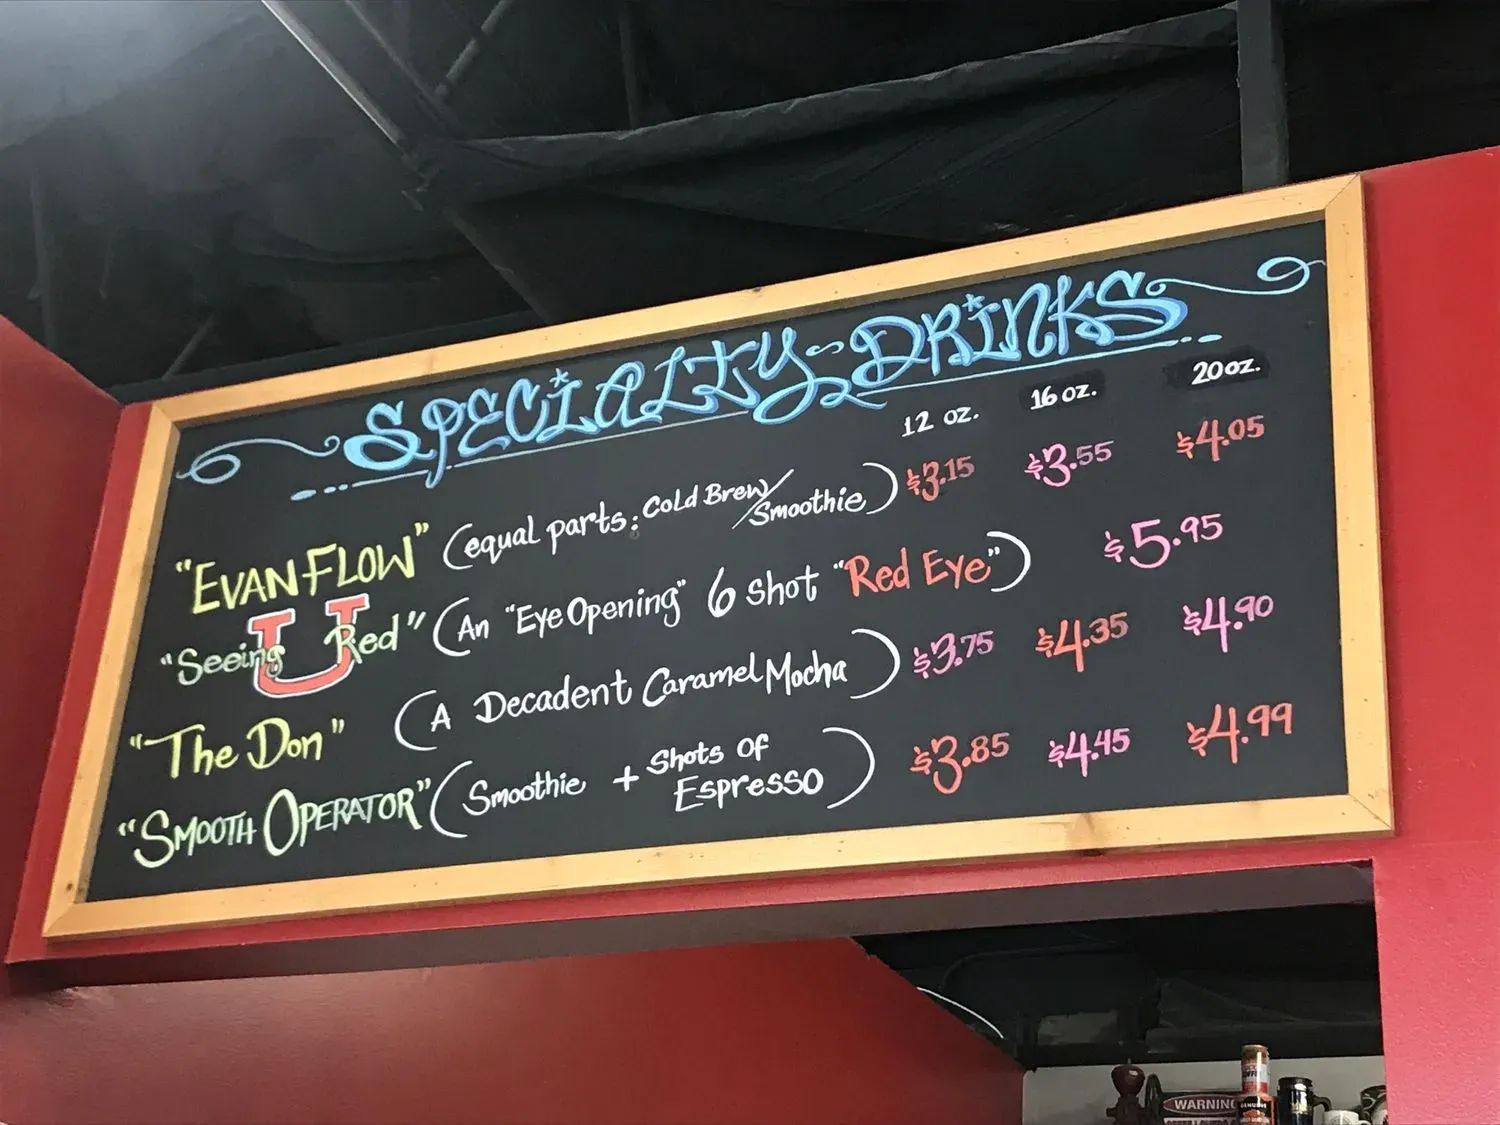 SPECIALTY DRINKS
12 oz. 16 oz. 20 oz.
"EVAN FLOW" (equal parts: Cold Brew/Smoothie) $3.15 $3.55 $4.05
U
"Seeing Red" (An "Eye Opening" 6 shot "Red Eye") $5.95
"The Don" (A Decadent Caramel Mocha) $3.75 $4.35 $4.90
"SMOOTH OPERATOR" (Smoothie + Shots Of Espresso) $3.85 $4.45 $4.99
WARNING